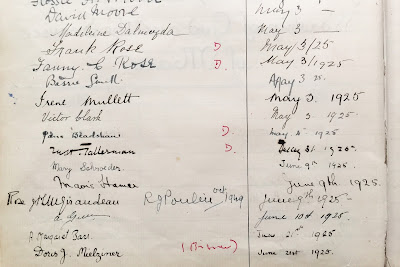 David Moore May 3 —
Madeleine Dalmeyda May 3 —
Frank Rose D May 3/25
Fanny C Rose D. May 3/1925
Bessie Smith May 3 25.
Irene Mullett May 3. 1925
Victor Clark May 3. 1925
Bradshaw D. May 4. 1925
Tallerman D. 31. 1925
Mary Schroeder. June 9th 1925.
Mavis Hamer June 9th. 1925.
Rose R J Poulin oct 1949 June 9th 1925 —
June 10th 1925.
Margaret June 21st 1925.
Doris J. Mielziner June 21st 1925